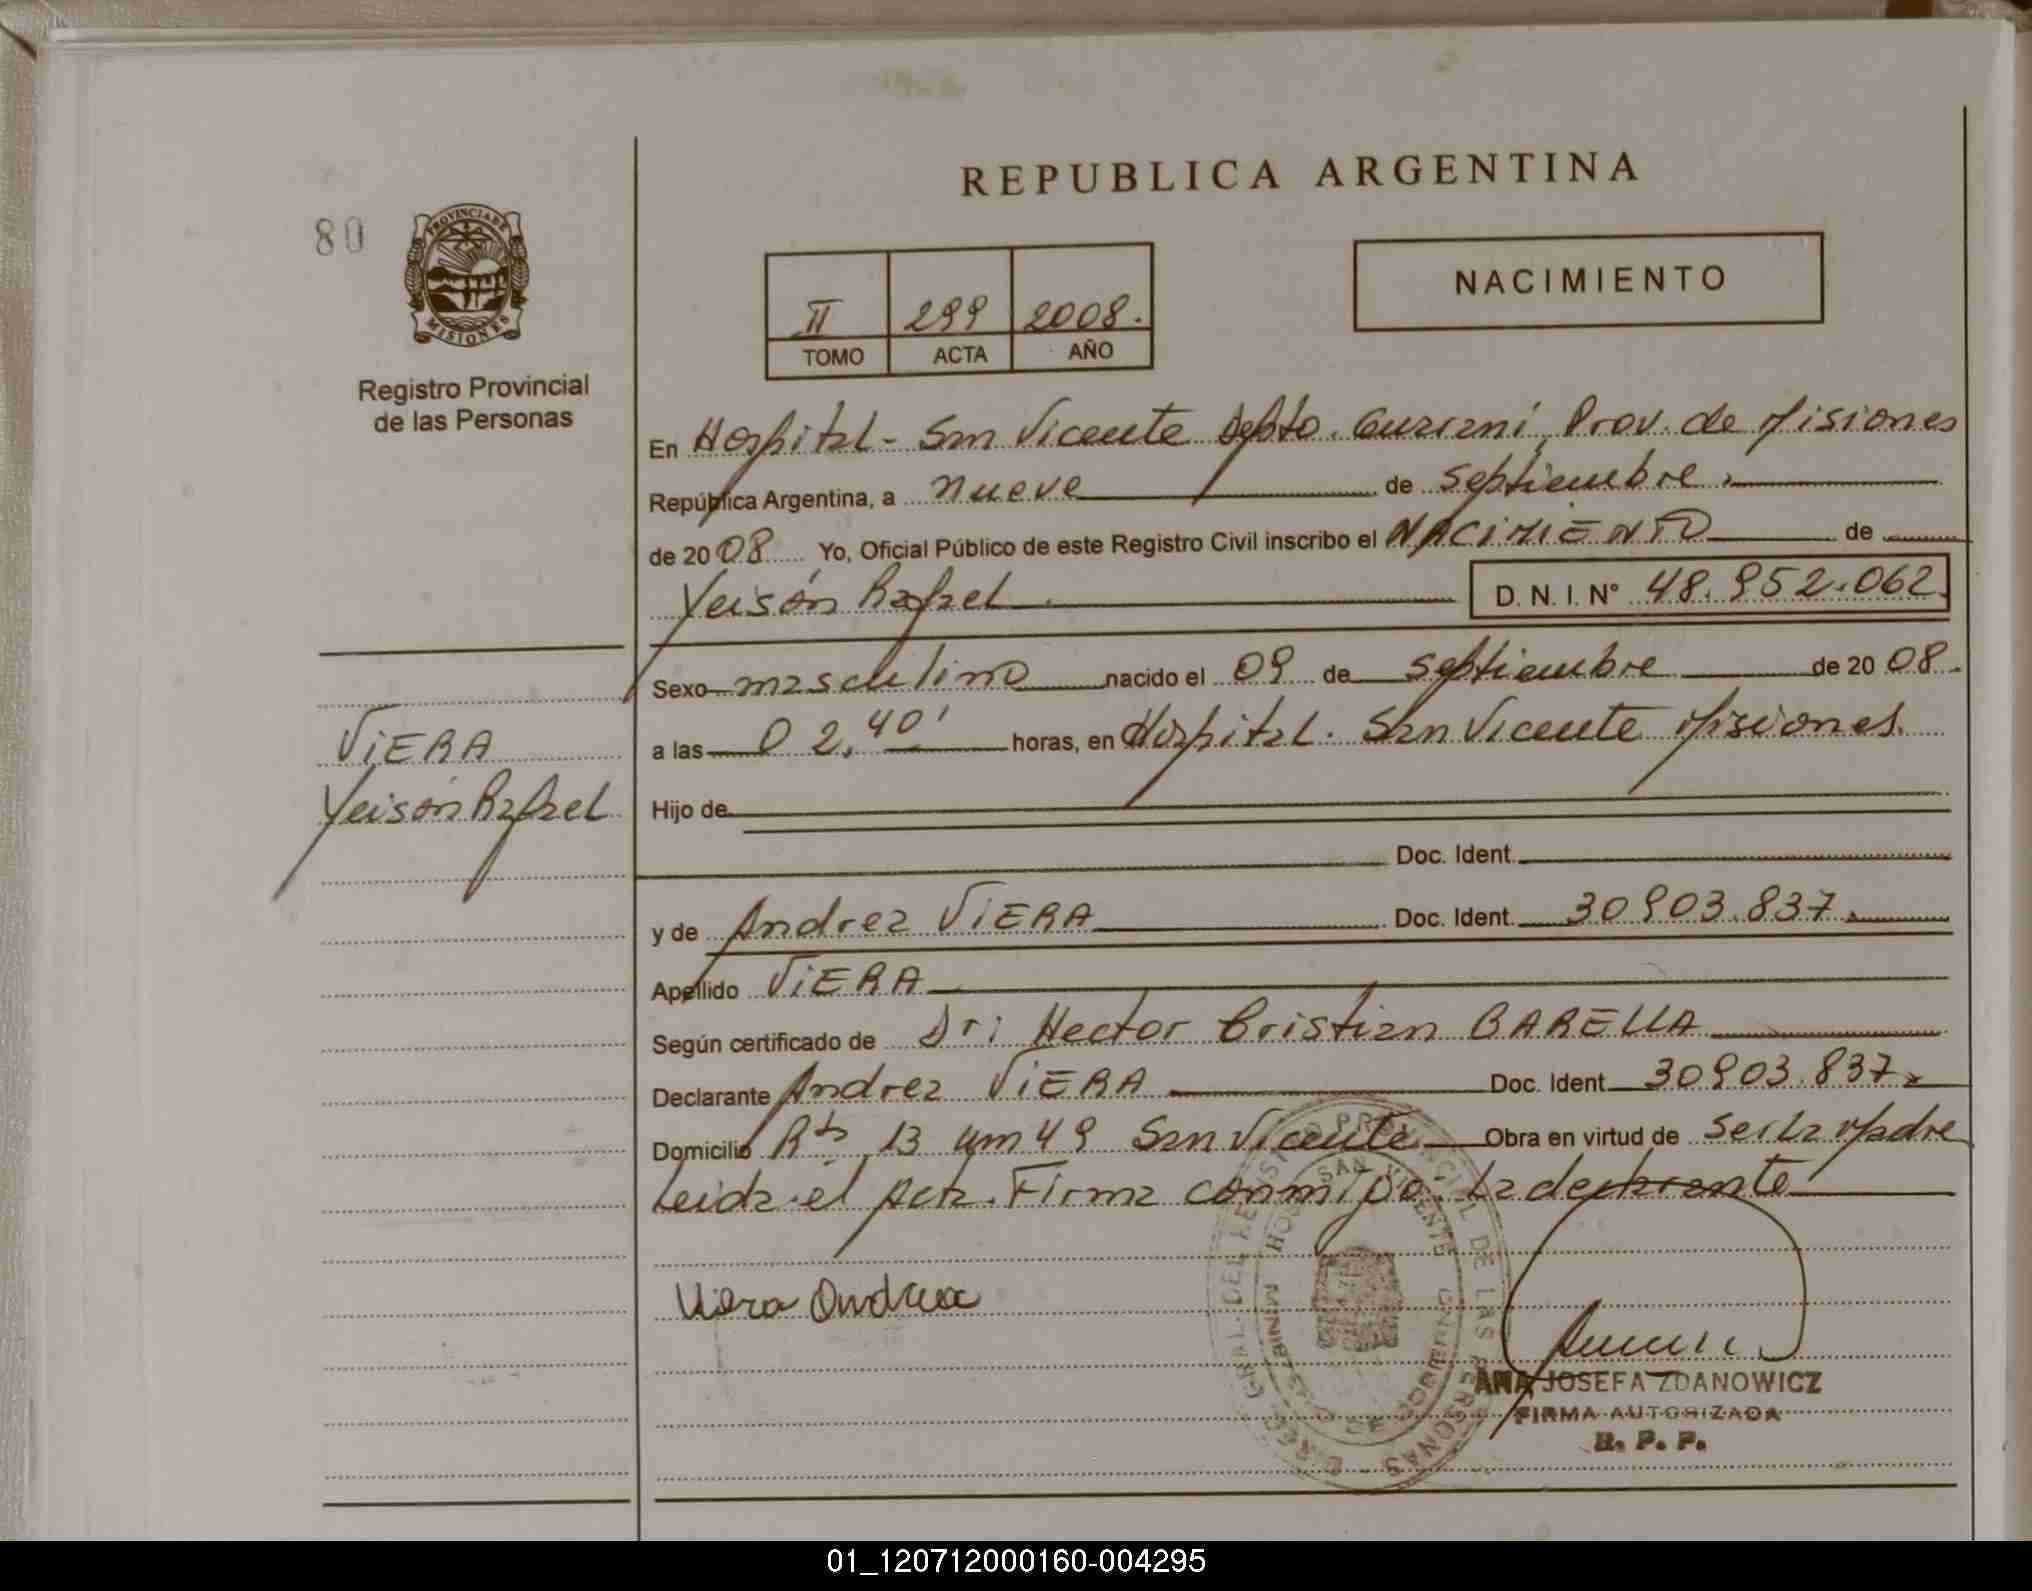 REPUBLICA ARGENTINA
80
PROVINCIA DE
MISIONES
Registro Provincial
de las Personas
NACIMIENTO
II 299 2008.
TOMO ACTA AÑO
En Hospital - San Vicente Depto. Guaraní, Prov. de Misiones
República Argentina, a nueve de septiembre
de 2008 Yo, Oficial Público de este Registro Civil inscribo el NACIMIENTO de
Yeisón Rafael D. N. I. N° 48.952.062
Sexo masculino nacido el 09 de septiembre de 2008.
a las 02,40' horas, en Hospital. San Vicente Misiones.
Hijo de
Doc. Ident.
y de Andrea VIERA Doc. Ident. 30903.837
Apellido VIERA
Según certificado de Dr: Hector Cristian BARELLA
Declarante Andrea VIERA Doc. Ident. 30903.837
Domicilio Rta 13 Km 49 San Vicente Obra en virtud de ser la Madre
Leida el Acta. Firma conmigo. La declarante
VIERA
Yeisón Rafael
Viera Andrea
HOSPITAL SAN VICENTE
ANA JOSEFA ZDANOWICZ
FIRMA AUTORIZADA
R. P. P.
01_120712000160-004295